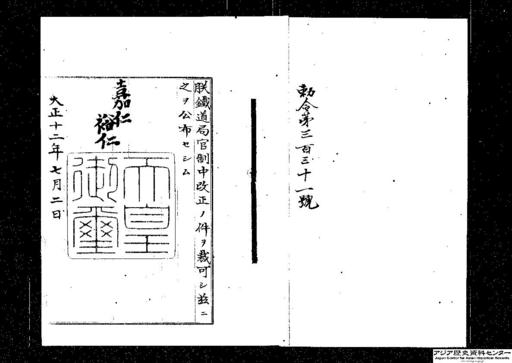 勅令第三百三十一號
朕鐵道局官制中改正ノ件ヲ裁可シ茲ニ
之ヲ公布セシム
嘉仁
裕仁
天皇
御璽
大正十二年七月二日
アジア歴史資料センター
Japan Center for Asian Historical Records